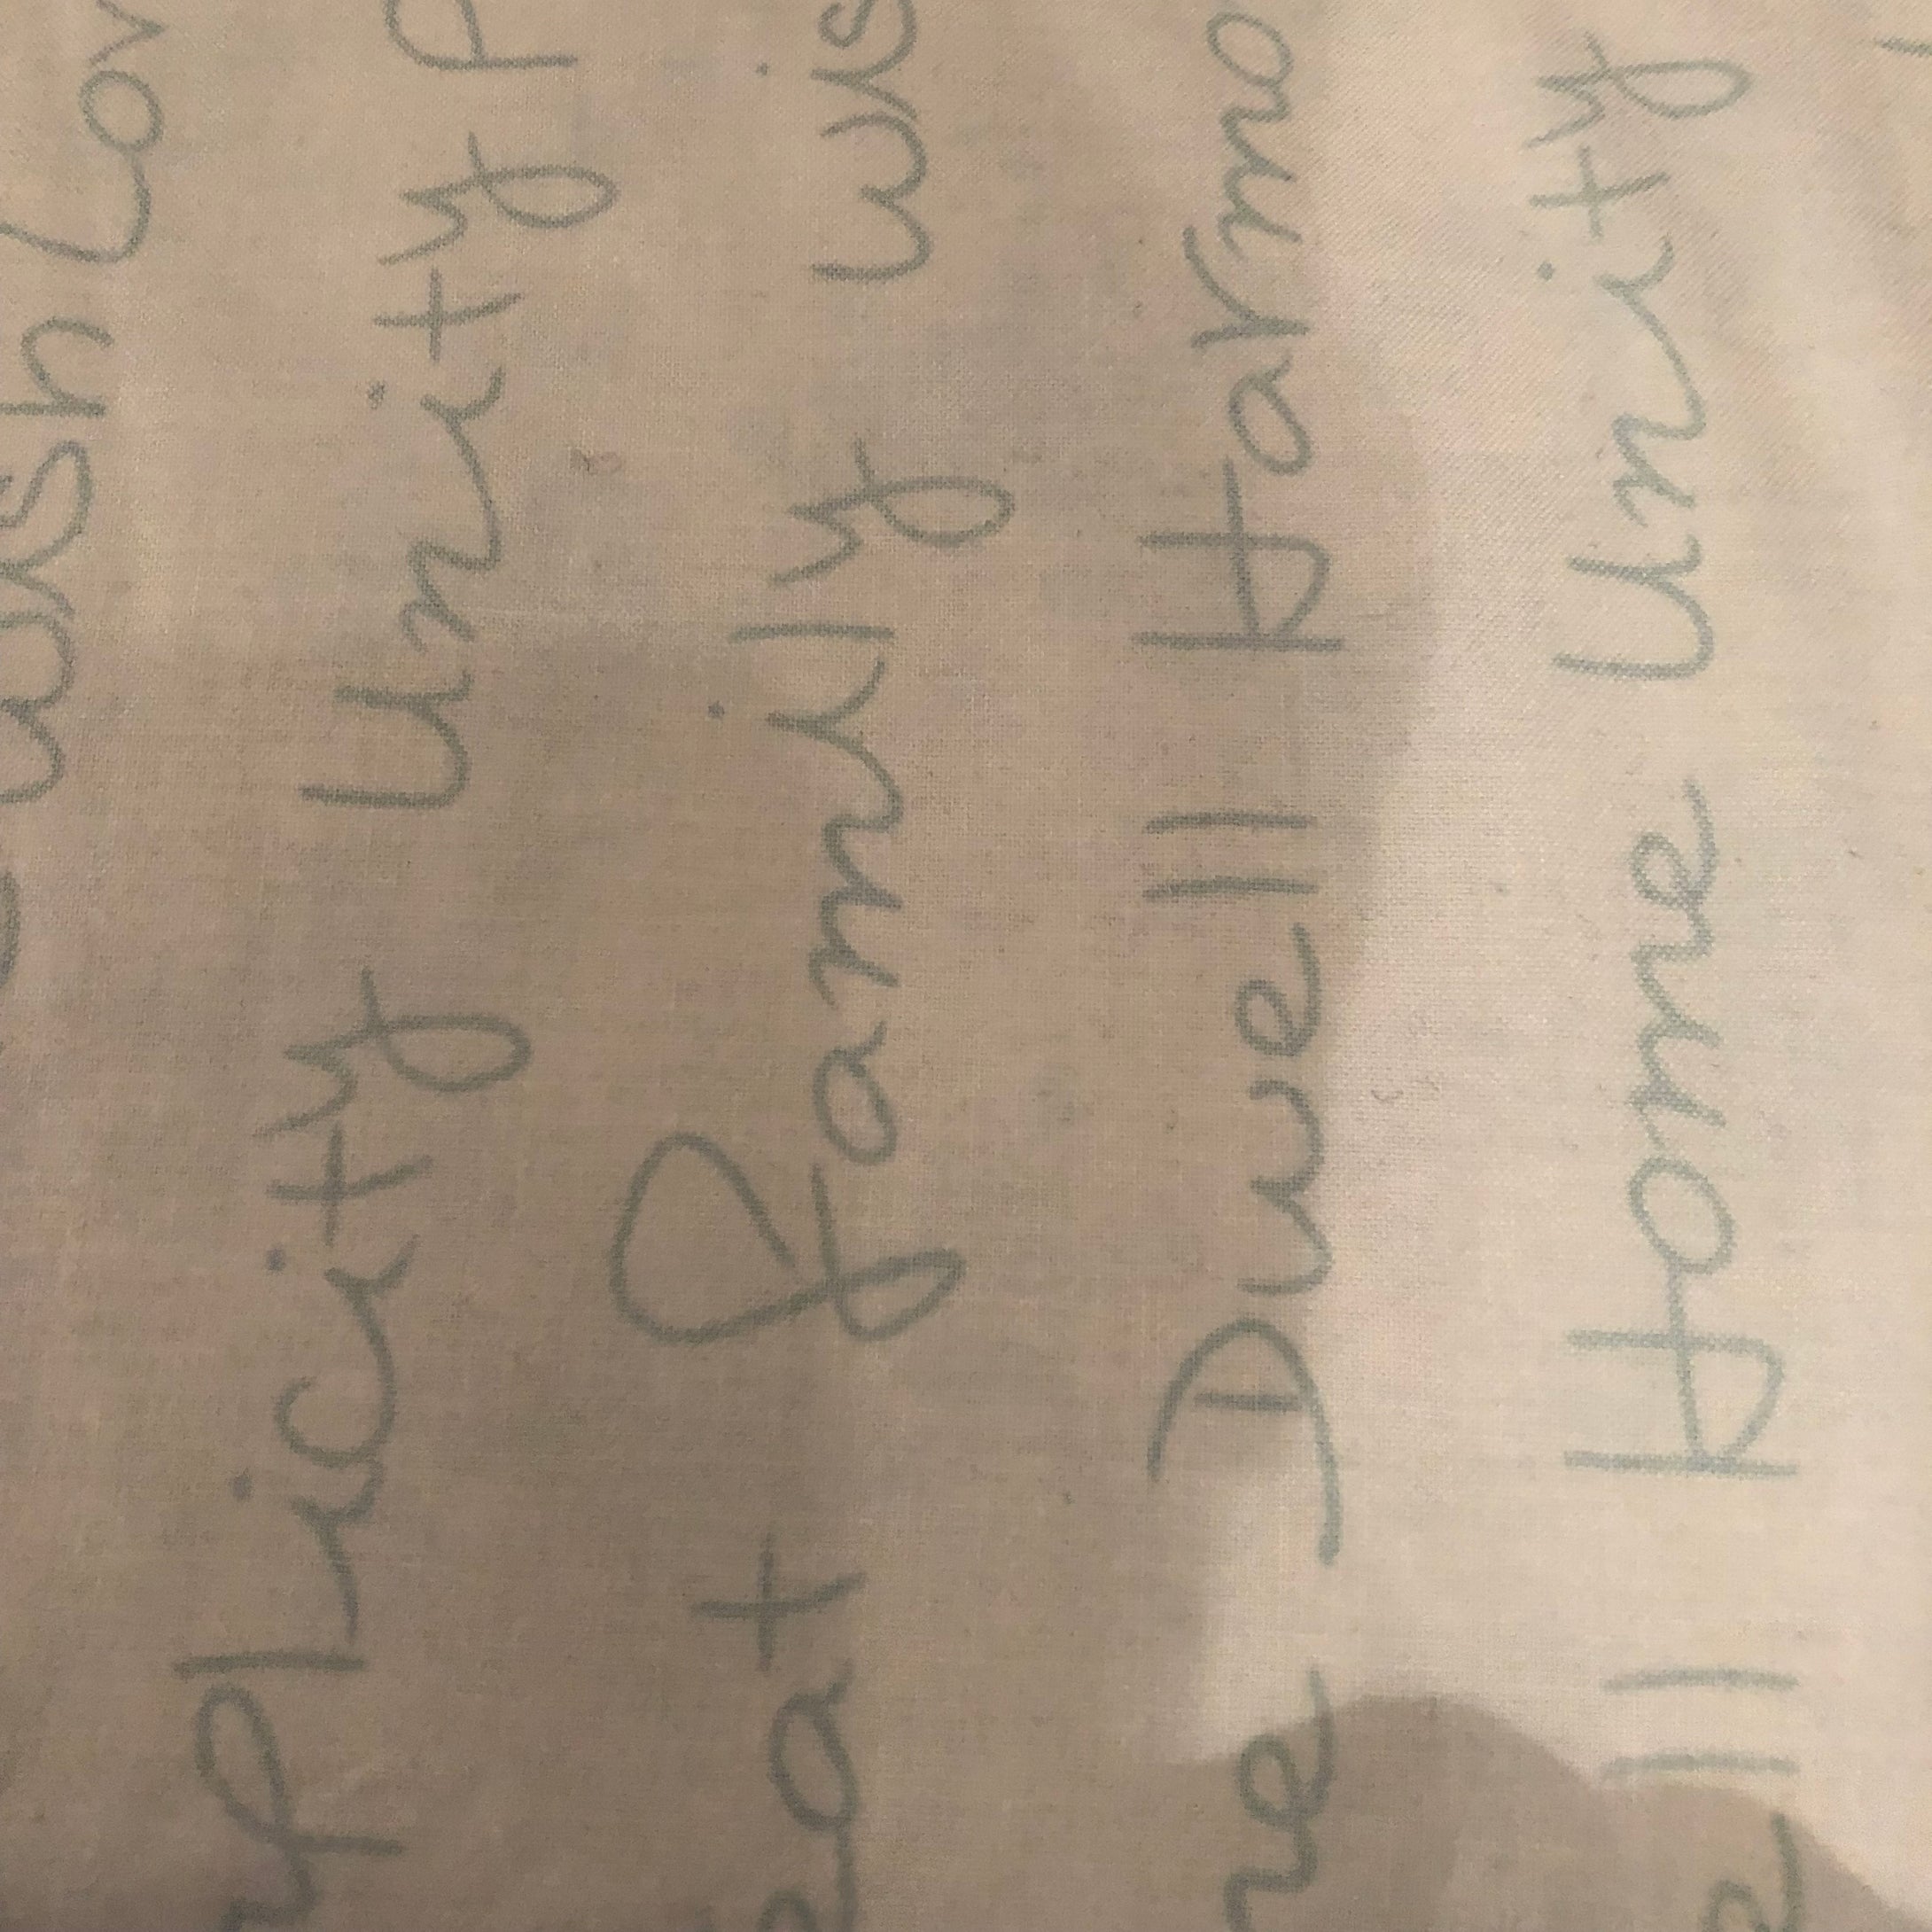 wish Lov
plicity Unity P
eat Family wis
me Dwell Harmo
ell Home Unity